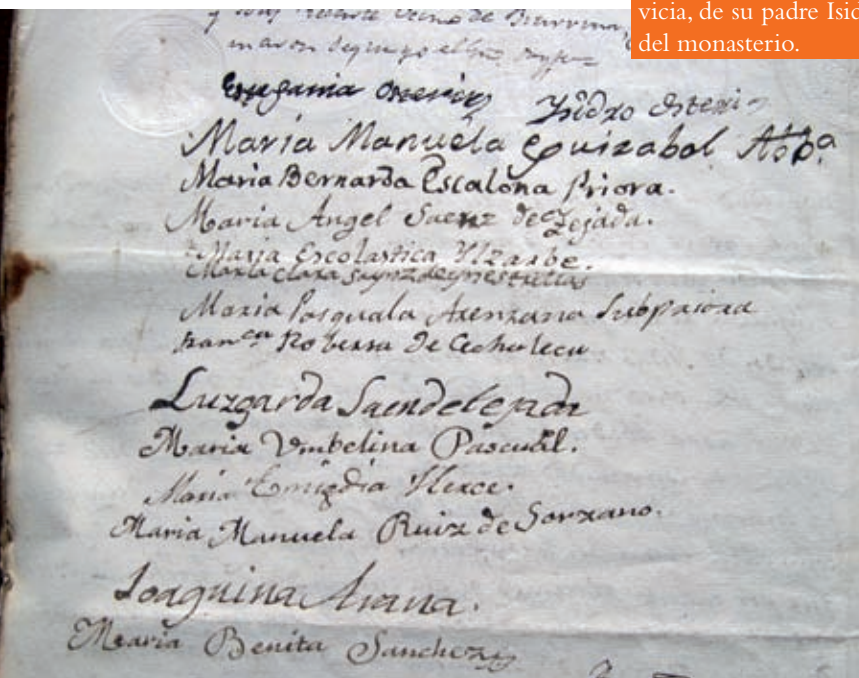 vicia, de su padre Isid
del monasterio.
de Burrima,
maron de que yo el
Eugenia Ysidro
Maria Manuela Eguizabal Abb.ª
Maria Bernarda Escalona Priora.
Maria Angel Saenz de Zejada.
Maria Escolastica Yzarbe.
Maria Clara
Maria Pasquala Arenzana Subpriora
Fran.ca Roberta De
Luzgarda Saendetejada
Maria Vmbelina Pascual.
Maria Emigdia Yllexce.
Maria Manuela Ruiz de Sorzano.
Joaquina Arana.
Maria Benita Sanchez